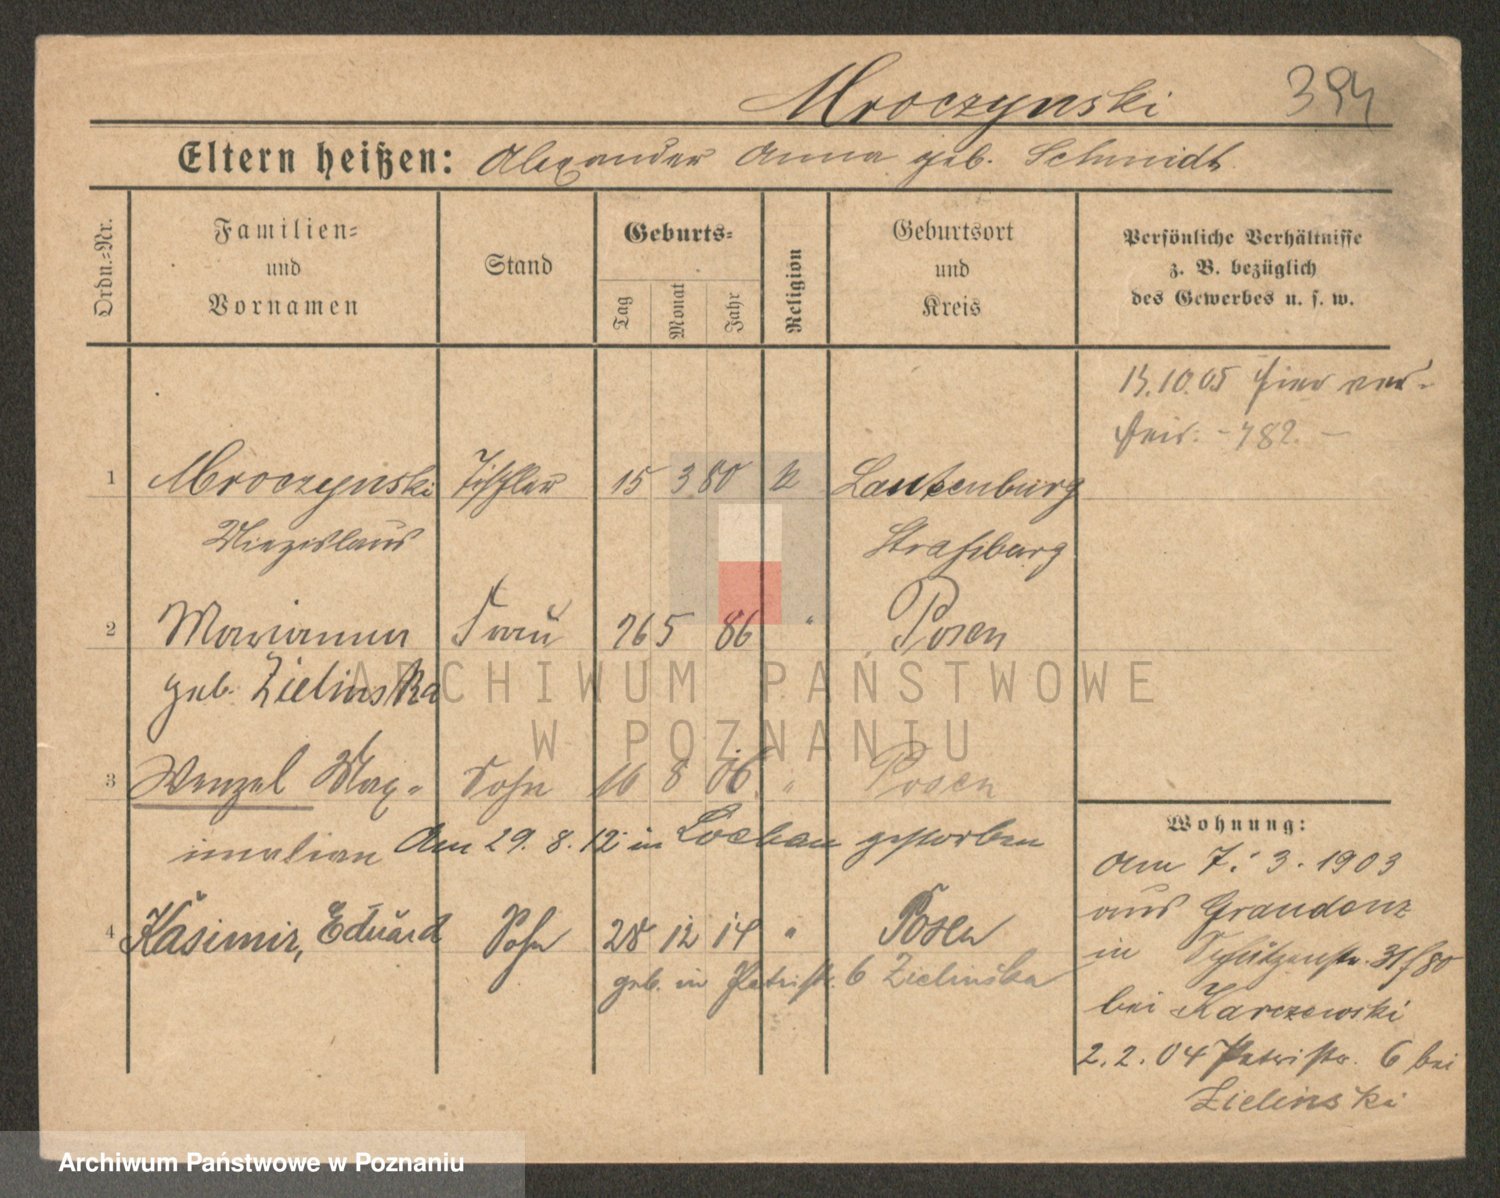 Mroczynski 394
Eltern heißen: Alexander Anna geb. Schmidt
Ordn.-Nr.
Familien- und Vornamen
Stand
Geburts-
Tag Monat Jahr
Religion
Geburtsort und Kreis
Persönliche Verhältnisse
z. B. bezüglich
des Gewerbes u. s. w.
13.10.05 hier ver-
heir. - 782. -
1 Mroczynski Tischler 15 3 80 k Lautenburg
Miezislaus Straßburg
2 Marianna Frau 26 5 86 " Posen
geb. Zielinska
3 Wenzel Max- Sohn 16 8 06 " Posen
imilian Am 29. 8. 12 in gestorben
4 Kasimir, Eduard Sohn 28 12 14 " Posen
geb. in Petristr. 6 Zielinska
Wohnung:
am 7. 3. 1903
aus Graudenz
in Schützenstr. 31/80
bei Karczewski
2. 2. 04 Petristr. 6 bei
Zielinski
ARCHIWUM PAŃSTWOWE
W POZNANIU
Archiwum Państwowe w Poznaniu